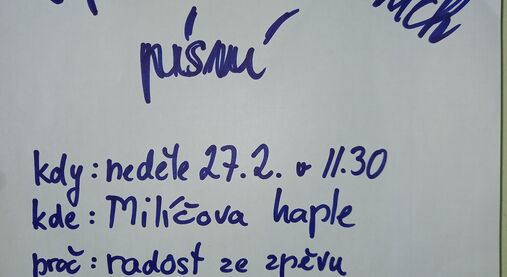 písní
kdy: neděle 27.2. v 11.30
kde: Milíčova kaple
proč: radost ze zpěvu